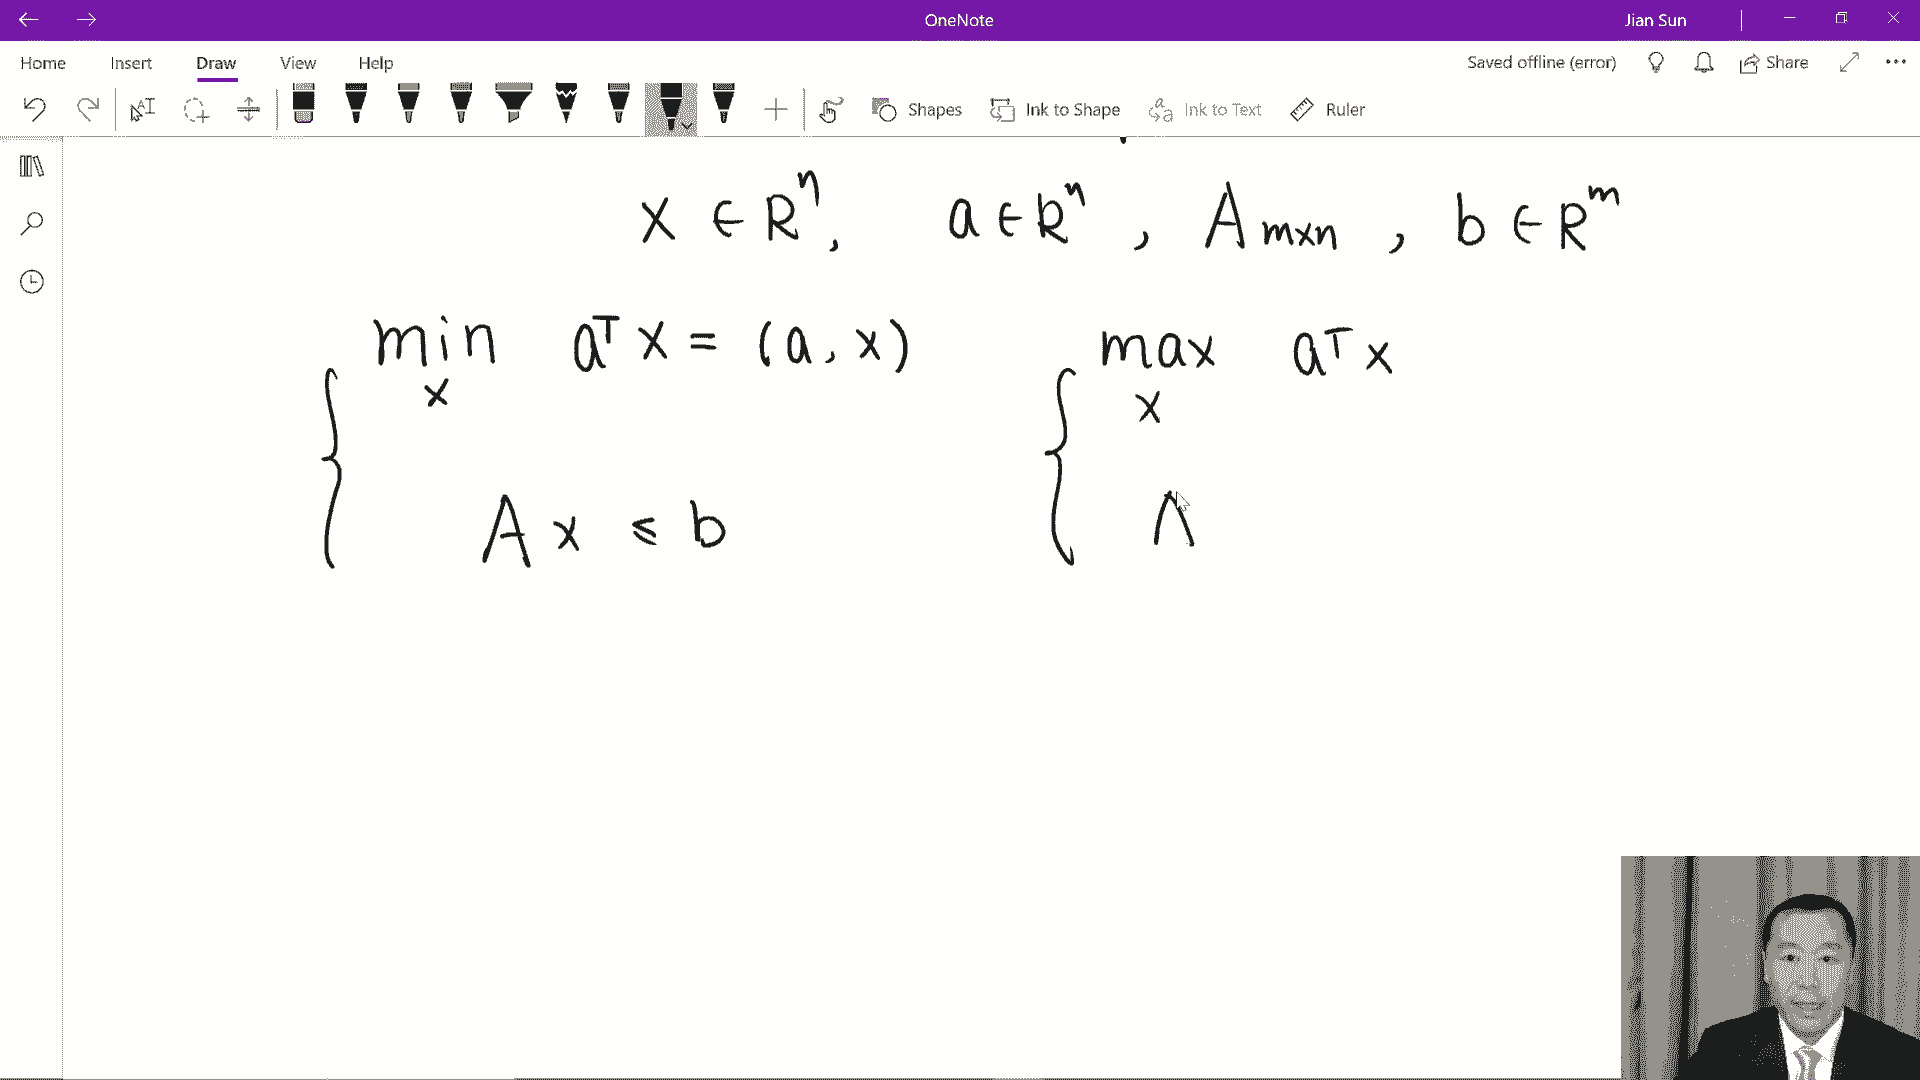 OneNote
Jian Sun
Home Insert Draw View Help
Saved offline (error) Share
Shapes Ink to Shape Ink to Text Ruler
x ∈ Rⁿ, a ∈ Rⁿ, A m×n, b ∈ Rᵐ
min aᵀx = (a, x) max aᵀx
x x
Ax ≤ b Λ